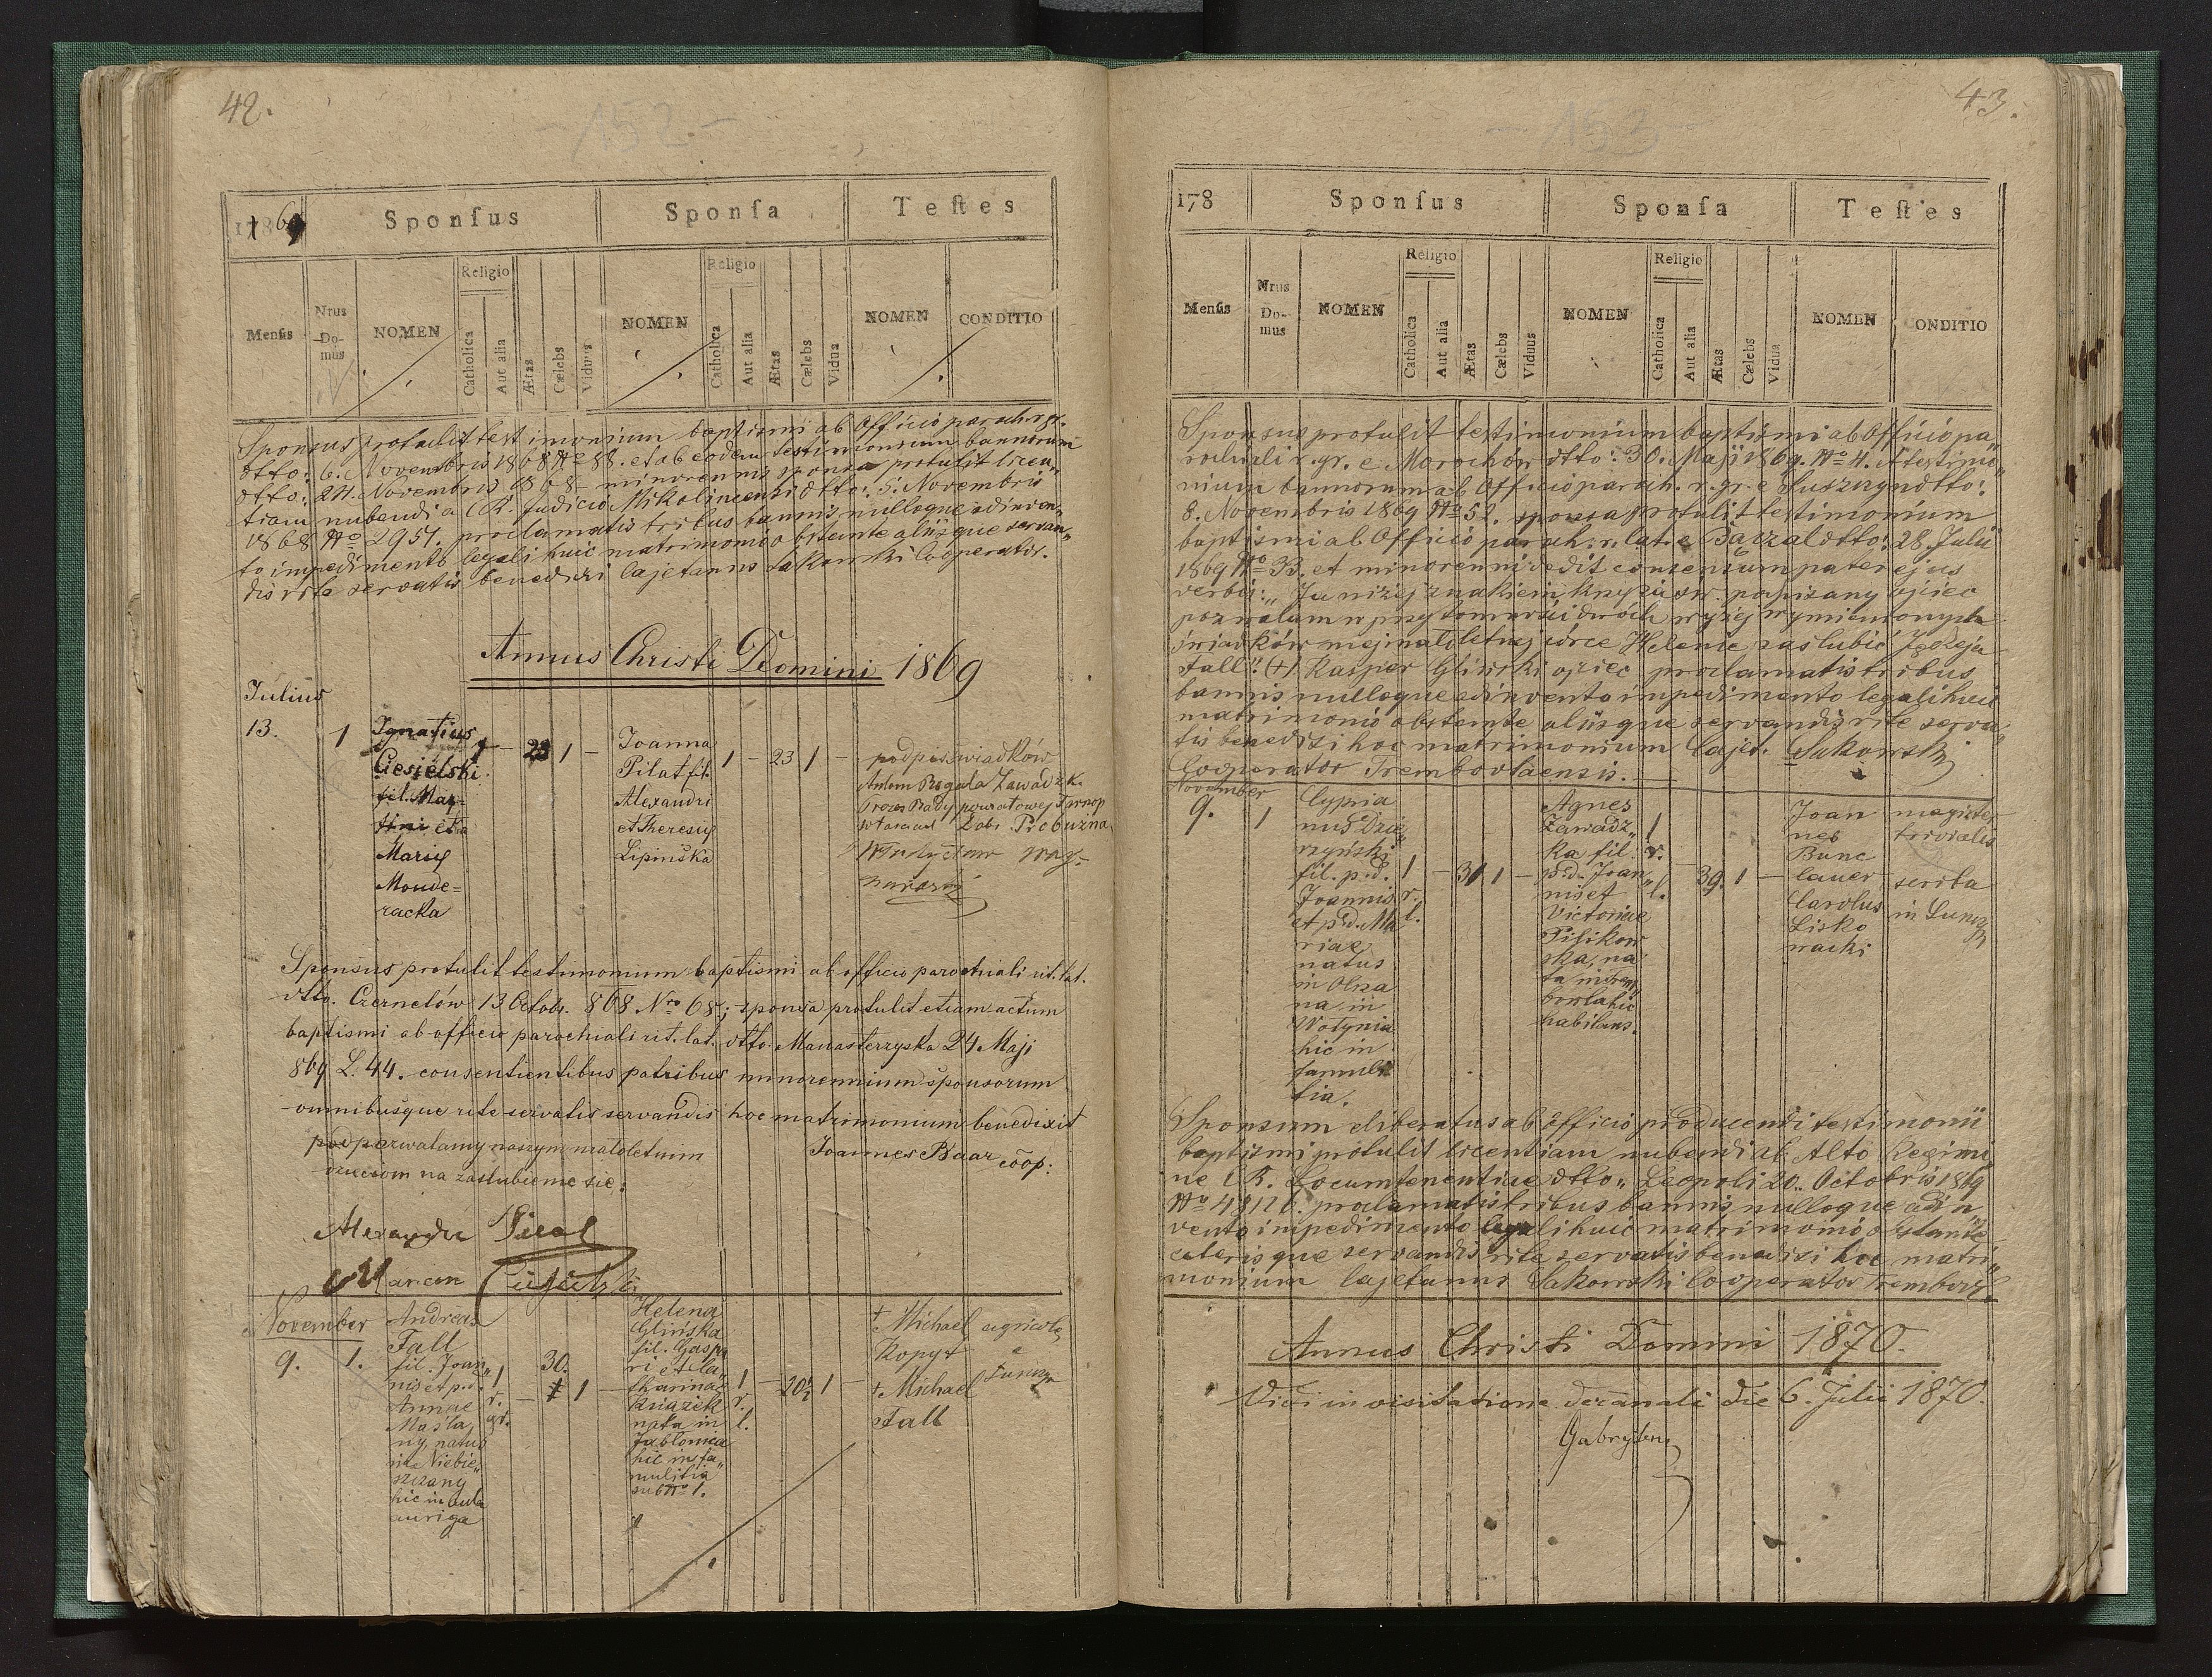 42.
- 152 -
1869
Sponſus
Sponſa
Teſtes
Menſis
Nrus Domus
NOMEN
Religio
Catholica
Aut alia
Ætas
Cælebs
Viduus
NOMEN
Religio
Catholica
Aut alia
Ætas
Cælebs
Vidua
NOMEN
CONDITIO
Sponsus protulit testimonium baptismi ab Officio paroch. r. gr.
dtto: 6. Novembris 1868 No 88. et ab eodem testimonium bannorum
dtto: 24. Novembris 1868. minorennis sponsa protulit licen„
tiam nubendi a C.R. Judicio Mikolincensi dtto: 5. Novembris
1868 No 2951. proclamatis tribus bannis, nulloque adinven„
to impedimento legali huic matrimonio obstante aliisque servan„
dis rite servatis benedixi Cajetanus Sakowski Cooperator.
Annus Christi Domini 1869
Julius
13. 1
Ignatius
Ciesielski
fil. Mar-
tini et
Mariy
Moude=
racka
1 - 23 1 -
Joanna
Pilat fil.
Alexandri
et Theresiy
Lipińska
1 - 23 1 -
podpis świadków
Antoni Rogala Zawadzk.
Prezes Rady powiatowej Tarnop
Dobr. Probużna
Sponsus protulit testimonium baptismi ab officio parochiali rit. lat.
dtto. Czernelów 13 Octob. 868 Nro 68; sponsa protulit etiam actum
baptismi ab officio parochiali rit. lat. dtto. Manasterzyska 24 Maji
869 L. 44. consentientibus patribus minorennium sponsorum
omnibusque rite servatis servandis hoc matrimonium benedixit
pozwalamy naszym małoletnim
Joannes Baar coop:
dzieciom na zaślubienie się:
Alexander Pilat
Marcin Ciesielski
November
9. 1.
Andreas
Fall
fil. Joan„
nis et p.d.
Annae
Masla„
ny, natus
in Niebie„
szczany
hic in aula
auriga
1 r. gr. - 30. 1 -
Helena
Glińska
fil. Gaspa
ri et Ca„
tharinae
Książek
nata in
Jabłonica
hic in fa„
mulitia
sub No 1.
1 r. l. - 20½ 1 -
+ Michael
Kopyt
+ Michael
Fall
agricolę
e
Łuncza
43.
- 153 -
178
Sponſus
Sponſa
Teſtes
Menſis
Nrus Domus
NOMEN
Religio
Catholica
Aut alia
Ætas
Cælebs
Viduus
NOMEN
Religio
Catholica
Aut alia
Ætas
Cælebs
Vidua
NOMEN
ONDITIO
Sponsus protulit testimonium baptismi ab Officio pa„
rochiali r. gr. e Morochów dtto: 30. Maji 1869. No 4. et testimo„
nium bannorum ab Officio paroch. r. gr. e Suszczyn dtto:
8. Novembris 1869 No 52. sponsa protulit testimonium
baptismi ab Officio paroch. r. lat. e dtto: 28. Julii
1869 No 33. et minorenni dedit consensum pater ejus
verbis: „Ja niżej znakiem krzyża św. podpisany ojciec
pozwalam w przytomności dwóch wyżej wymienionych
świadków mojej małoletniej córce Helenie zaślubić Jędrzeja
Fall." (+) Kasper Gliński ojciec proclamatis tribus
bannis nulloque adinvento impedimento legali huic
matrimonio obstante aliisque servandis rite serva„
tis benedixi hoc matrimonium Cajet. Sakowski
Cooperator Trembovlaensis.
November
9. 1
Cypria
nus Dzie„
rzyński
fil. p.d.
Joannis
et p.d. Ma
riae
natus
in Olsza
na in
Wołynia
hic in
famuli
tia.
1 r. l. - 31 1 -
Agnes
Zawadz„
ka fil.
p.d. Joan„
nis et
Victoriae
Pisikow
ska, na
ta in Trem„
bowla hic
habitans.
1 r. l. 39. 1 -
Joan
nes
Bunc
lauer
Carolus
Lisko
wacki
magister
trivialis
scriba
in Luncz
Sponsum liberatus ab officio producendi testimonii
baptismi protulit licentiam nubendi ab Alto Regimi
ne C.R. Locumtenentiae dtto„ Leopoli 20. Octobris 1869
No 48126. proclamatis tribus bannis nulloque adin
vento impedimento legali huic matrimonio obstante
ceterisque servandis rite servatis benedixi hoc matri„
monium Cajetanus Sakowski Cooperator Trembowl.
Annus Christi Domini 1870.
Vidi in visitatione decanali die 6. Julii 1870.